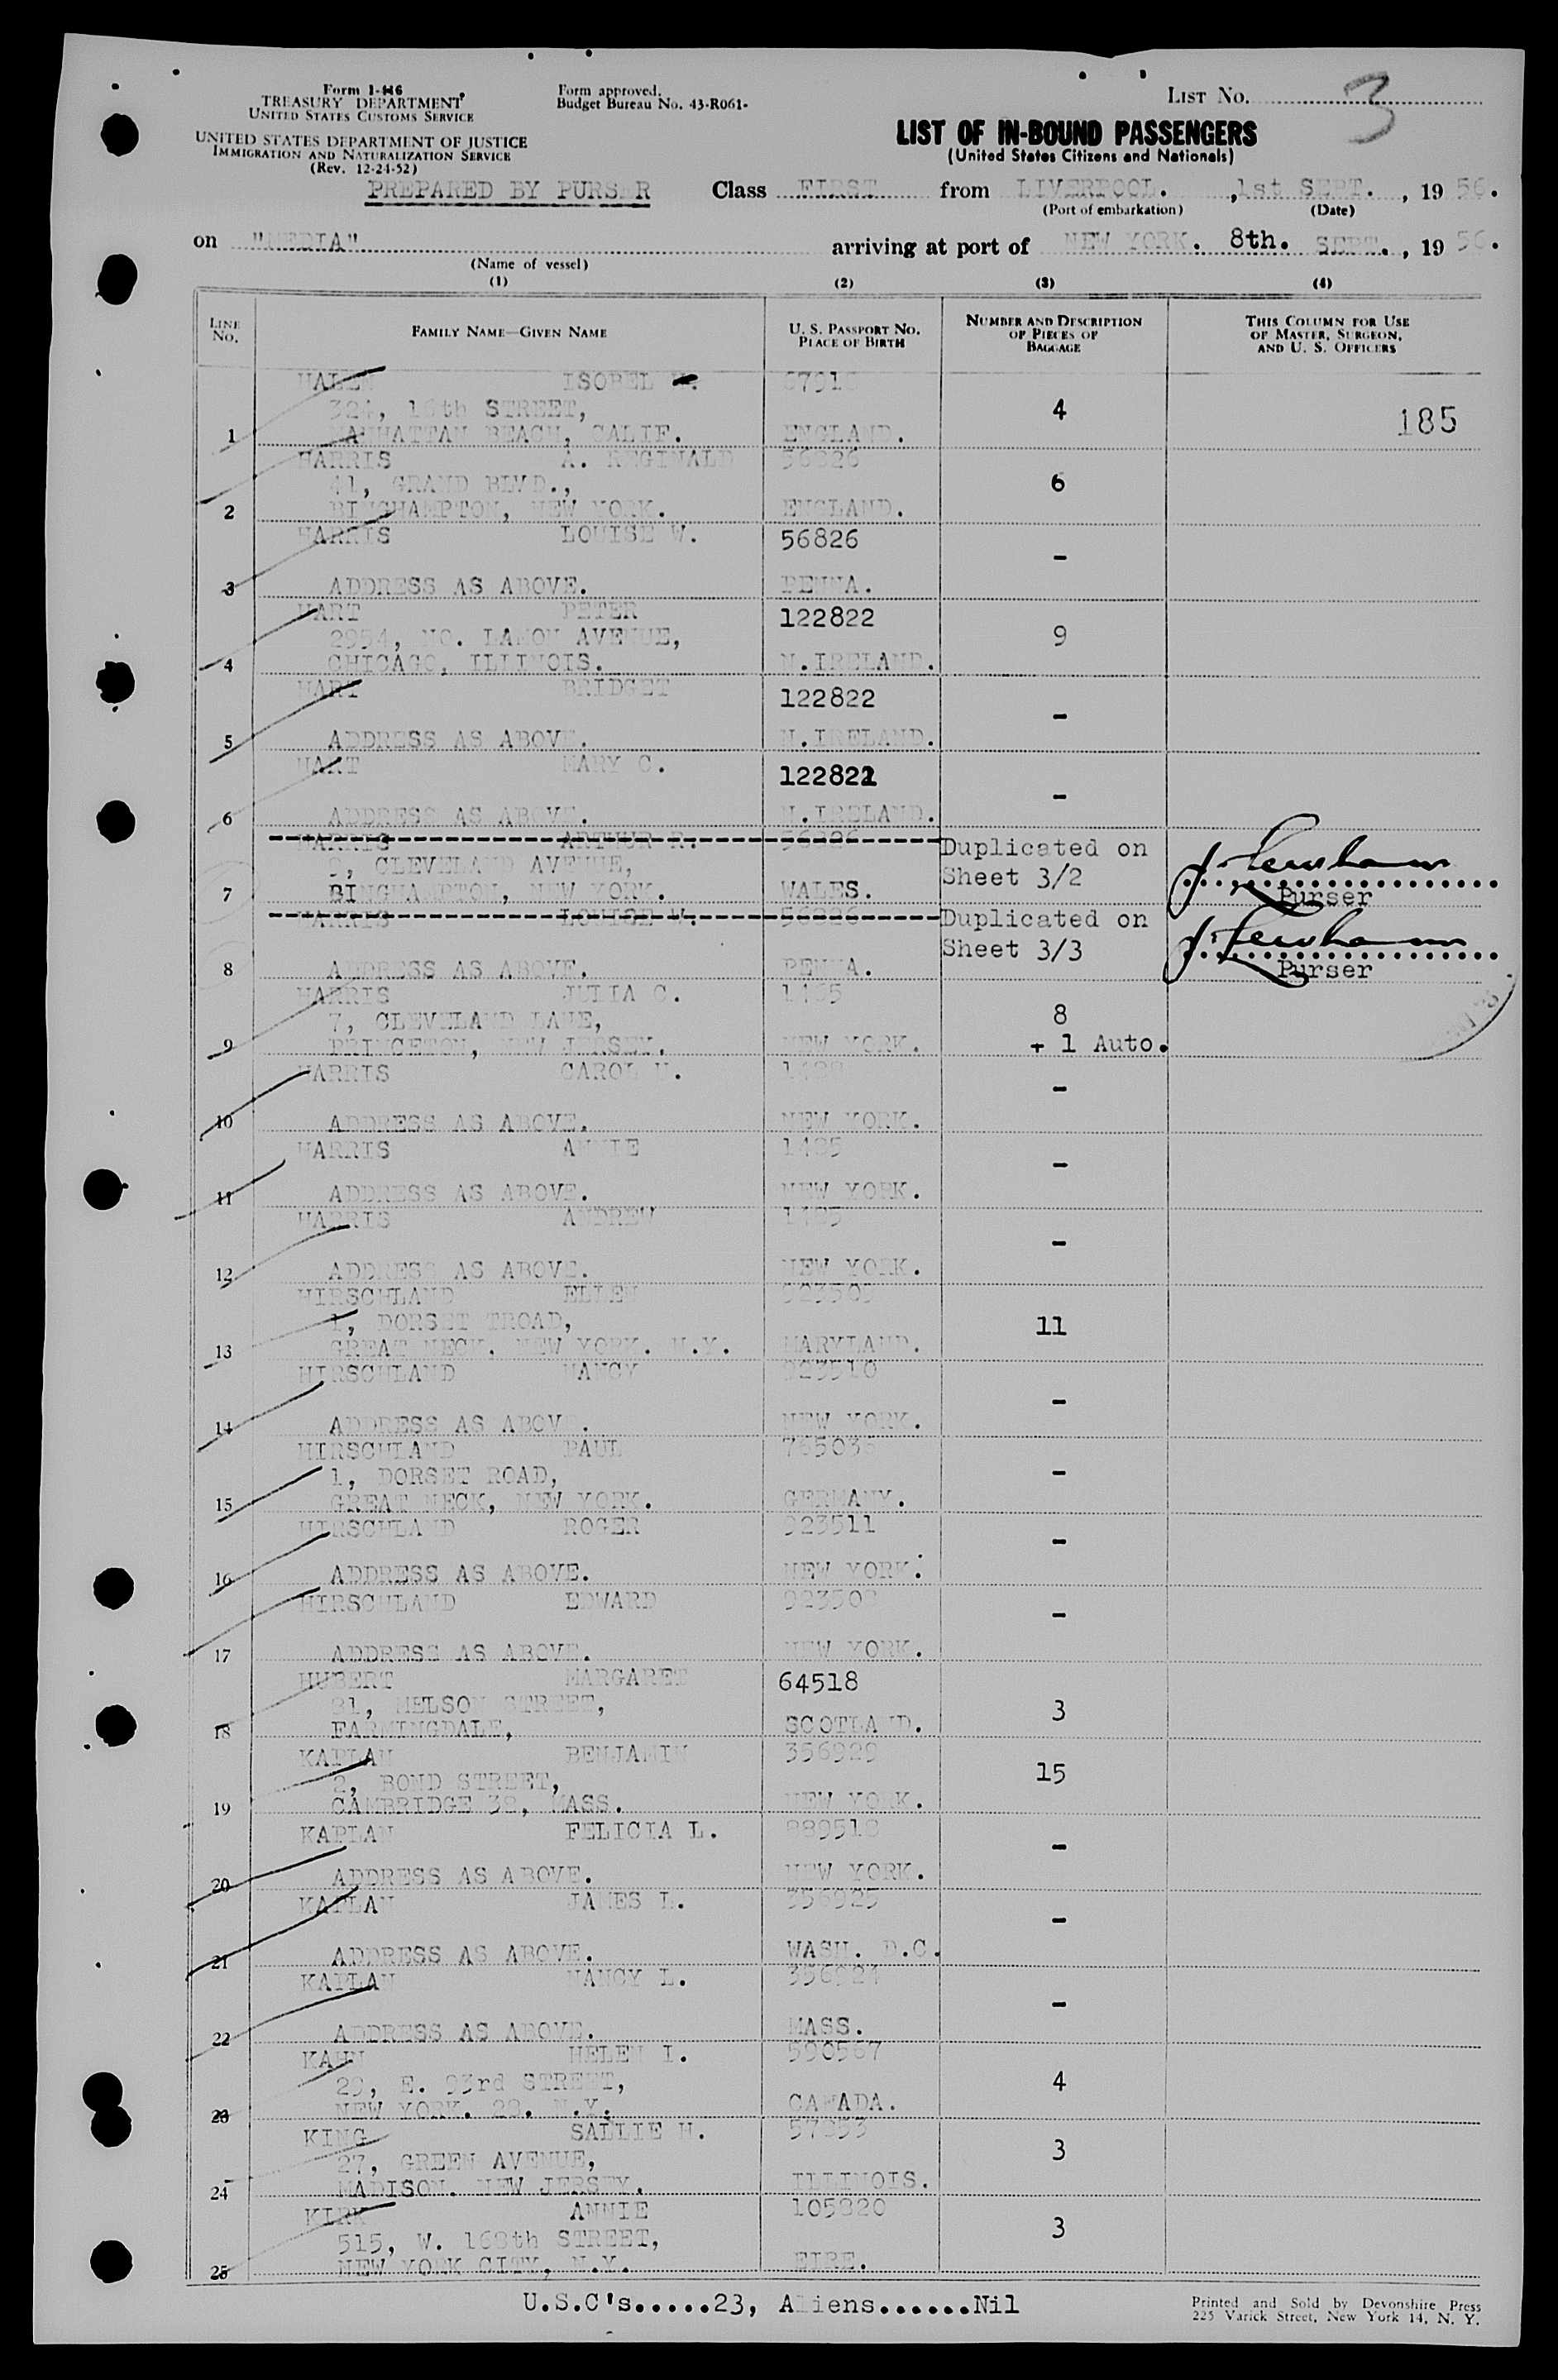 Form I-416
TREASURY DEPARTMENT
UNITED STATES CUSTOMS SERVICE
UNITED STATES DEPARTMENT OF JUSTICE
IMMIGRATION AND NATURALIZATION SERVICE
(Rev. 12-24-52)
PREPARED BY PURSER
Form approved.
Budget Bureau No. 43-R061-
LIST No. 3
LIST OF IN-BOUND PASSENGERS
(United States Citizens and Nationals)
Class FIRST from LIVERPOOL. , 1st SEPT. , 19 56.
(Port of embarkation) (Date)
on "MEDIA" arriving at port of NEW YORK. 8th. SEPT. , 19 56.
(Name of vessel)
(1) (2) (3) (4)
LINE No. FAMILY NAME—GIVEN NAME U. S. PASSPORT No. PLACE OF BIRTH NUMBER AND DESCRIPTION OF PIECES OF BAGGAGE THIS COLUMN FOR USE OF MASTER, SURGEON, AND U. S. OFFICERS
ISOBEL
STREET, 4
1 MANHATTAN BEACH, CALIF. ENGLAND. 185
HARRIS A. REGINALD
41, GRAND BLVD., 6
2 BINGHAMPTON, NEW YORK. ENGLAND.
HARRIS LOUISE W. 56826
-
3 ADDRESS AS ABOVE. PENNA.
HART PETER 122822
2954, NO. AVENUE, 9
4 CHICAGO, ILLINOIS. N.IRELAND.
HART BRIDGET 122822
-
5 ADDRESS AS ABOVE. N.IRELAND.
HART MARY C.
-
6 ADDRESS AS ABOVE. N.IRELAND.
HARRIS ARTHUR R. Duplicated on
CLEVELAND AVENUE, Sheet 3/2
7 BINGHAMPTON, NEW YORK. WALES. Purser
HARRIS LOUISE W. Duplicated on
Sheet 3/3
8 ADDRESS AS ABOVE. PENNA. Purser
HARRIS JULIA C.
7, CLEVELAND LANE, 8
9 PRINCETON, NEW JERSEY. NEW YORK. + 1 Auto.
HARRIS CAROL
-
10 ADDRESS AS ABOVE. NEW YORK.
HARRIS ANNIE
-
11 ADDRESS AS ABOVE. NEW YORK.
HARRIS ANDREW
-
12 ADDRESS AS ABOVE. NEW YORK.
HIRSCHLAND ELLEN
1, DORSET TROAD, 11
13 GREAT NECK, NEW YORK. N.Y. MARYLAND.
HIRSCHLAND NANCY 923510
-
14 ADDRESS AS ABOV . NEW YORK.
HIRSCHLAND PAUL
1, DORSET ROAD, -
15 GREAT NECK, NEW YORK. GERMANY.
HIRSCHLAND ROGER 923511
-
16 ADDRESS AS ABOVE. NEW YORK.
HIRSCHLAND EDWARD
-
17 ADDRESS AS ABOVE. NEW YORK.
HUBERT MARGARET 64518
NELSON STREET, 3
18 FARMINGDALE, SCOTLAND.
KAPLAN BENJAMIN 356929
2, BOND STREET, 15
19 CAMBRIDGE 38, MASS. NEW YORK.
KAPLAN FELICIA L.
-
20 ADDRESS AS ABOVE. NEW YORK.
KAPLAN JAMES L. 356925
-
21 ADDRESS AS ABOVE. WASH. D.C.
KAPLAN NANCY L.
-
22 ADDRESS AS ABOVE. MASS.
KAHN HELEN I. 590567
29, E. 93rd STREET, 4
23 NEW YORK. 28. N.Y. CANADA.
KING SALLIE H.
27, GREEN AVENUE, 3
24 MADISON. NEW JERSEY. ILLINOIS.
KIRK ANNIE 105820
515, W. 168th STREET, 3
25 NEW YORK CITY, N.Y. EIRE.
U.S.C's.....23, Aliens.......Nil
Printed and Sold by Devonshire Press
225 Varick Street, New York 14, N. Y.